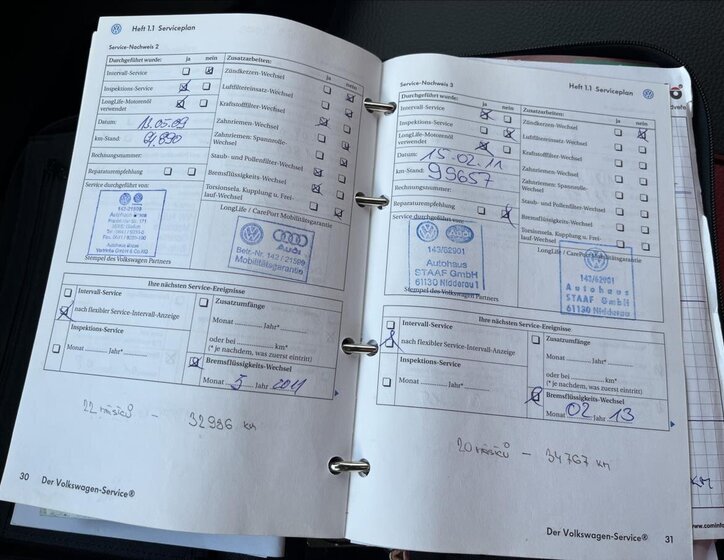 Heft 1.1 Serviceplan
Service-Nachweis 2
Durchgeführt wurde: ja nein
Intervall-Service
Inspektions-Service
LongLife-Motorenöl verwendet
Datum: 13.05.09
km-Stand: 61.890
Rechnungsnummer:
Reparaturempfehlung
Service durchgeführt von:
142/21599
Autohaus
Autohaus
Vertriebs GmbH & Co.KG
Stempel des Volkswagen Partners
Zusatzarbeiten: ja nein
Zündkerzen-Wechsel
Luftfiltereinsatz-Wechsel
Kraftstofffilter-Wechsel
Zahnriemen-Wechsel
Zahnriemen: Spannrolle-Wechsel
Staub- und Pollenfilter-Wechsel
Bremsflüssigkeits-Wechsel
Torsionsela. Kupplung u. Freilauf-Wechsel
LongLife / CarePort Mobilitätsgarantie
Audi
Betr.-Nr. 142 / 21599
Mobilitätsgarantie
Ihre nächsten Service-Ereignisse
Intervall-Service
nach flexibler Service-Intervall-Anzeige
Inspektions-Service
Monat Jahr*
Zusatzumfänge
Monat Jahr*
oder bei km*
(* je nachdem, was zuerst eintritt)
Bremsflüssigkeits-Wechsel
Monat 5 Jahr 2011
22 měsíců - 32986 km
30
Der Volkswagen-Service®
Heft 1.1 Serviceplan
Service-Nachweis 3
Durchgeführt wurde: ja nein
Intervall-Service
Inspektions-Service
LongLife-Motorenöl verwendet
Datum: 15.02.11
km-Stand: 99657
Rechnungsnummer:
Reparaturempfehlung
Service durchgeführt von:
Audi
143/62901
Autohaus
STAAF GmbH
61130 Nidderau1
Stempel des Volkswagen Partners
Zusatzarbeiten: ja nein
Zündkerzen-Wechsel
Luftfiltereinsatz-Wechsel
Kraftstofffilter-Wechsel
Zahnriemen-Wechsel
Zahnriemen: Spannrolle-Wechsel
Staub- und Pollenfilter-Wechsel
Bremsflüssigkeits-Wechsel
Torsionsela. Kupplung u. Freilauf-Wechsel
LongLife / CarePort Mobilitätsgarantie
143/62901
Autohaus
STAAF GmbH
61130 Nidderau
Ihre nächsten Service-Ereignisse
Intervall-Service
nach flexibler Service-Intervall-Anzeige
Inspektions-Service
Monat Jahr*
Zusatzumfänge
Monat Jahr*
oder bei km*
(* je nachdem, was zuerst eintritt)
Bremsflüssigkeits-Wechsel
Monat 02 Jahr 13
20 měsíců - 34767 km
Der Volkswagen-Service®
31
KM